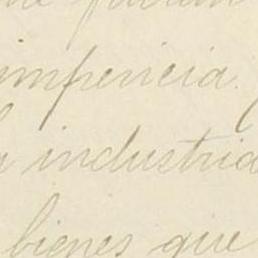 impericia.
industria
bienes que